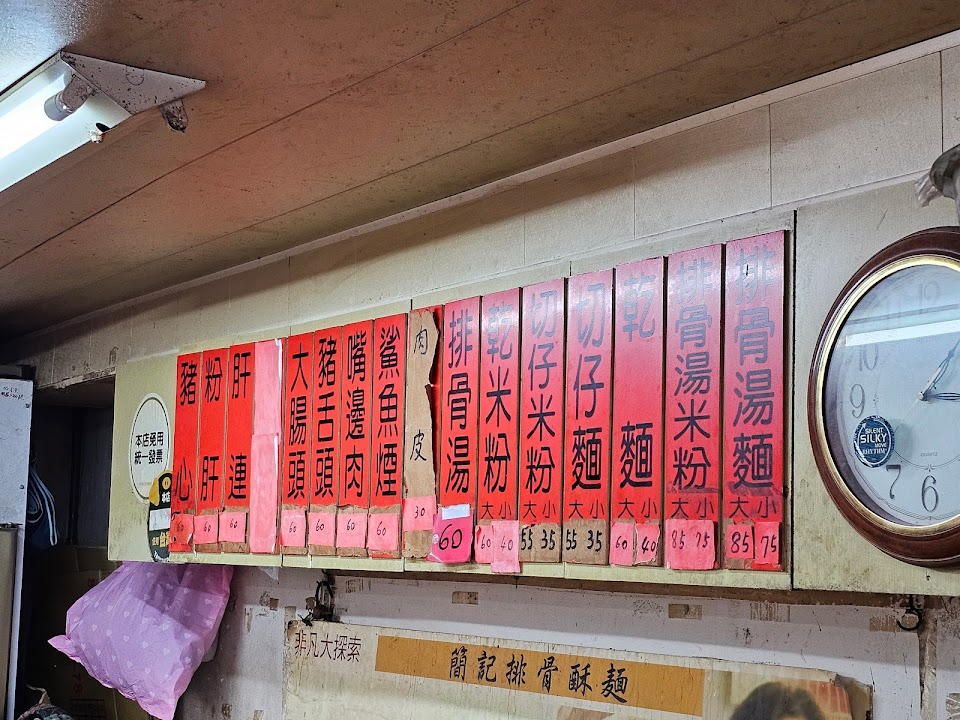 排骨湯麵 大 小 85 75
排骨湯米粉 大 小 85 75
乾麵 大 小 60 40
切仔麵 大 小 55 35
切仔米粉 大 小 55 35
乾米粉 大 小 60 40
排骨湯 60
肉皮 30
鯊魚煙 60
嘴邊肉 60
豬舌頭 60
大腸頭 60
肝連 60
粉肝 60
豬心 60
本店發用
統一發票
非凡大探索
簡記排骨酥麵
12
10
9
7
6
SILENT
SILKY
MOVE
RHYTHM
QUARTZ